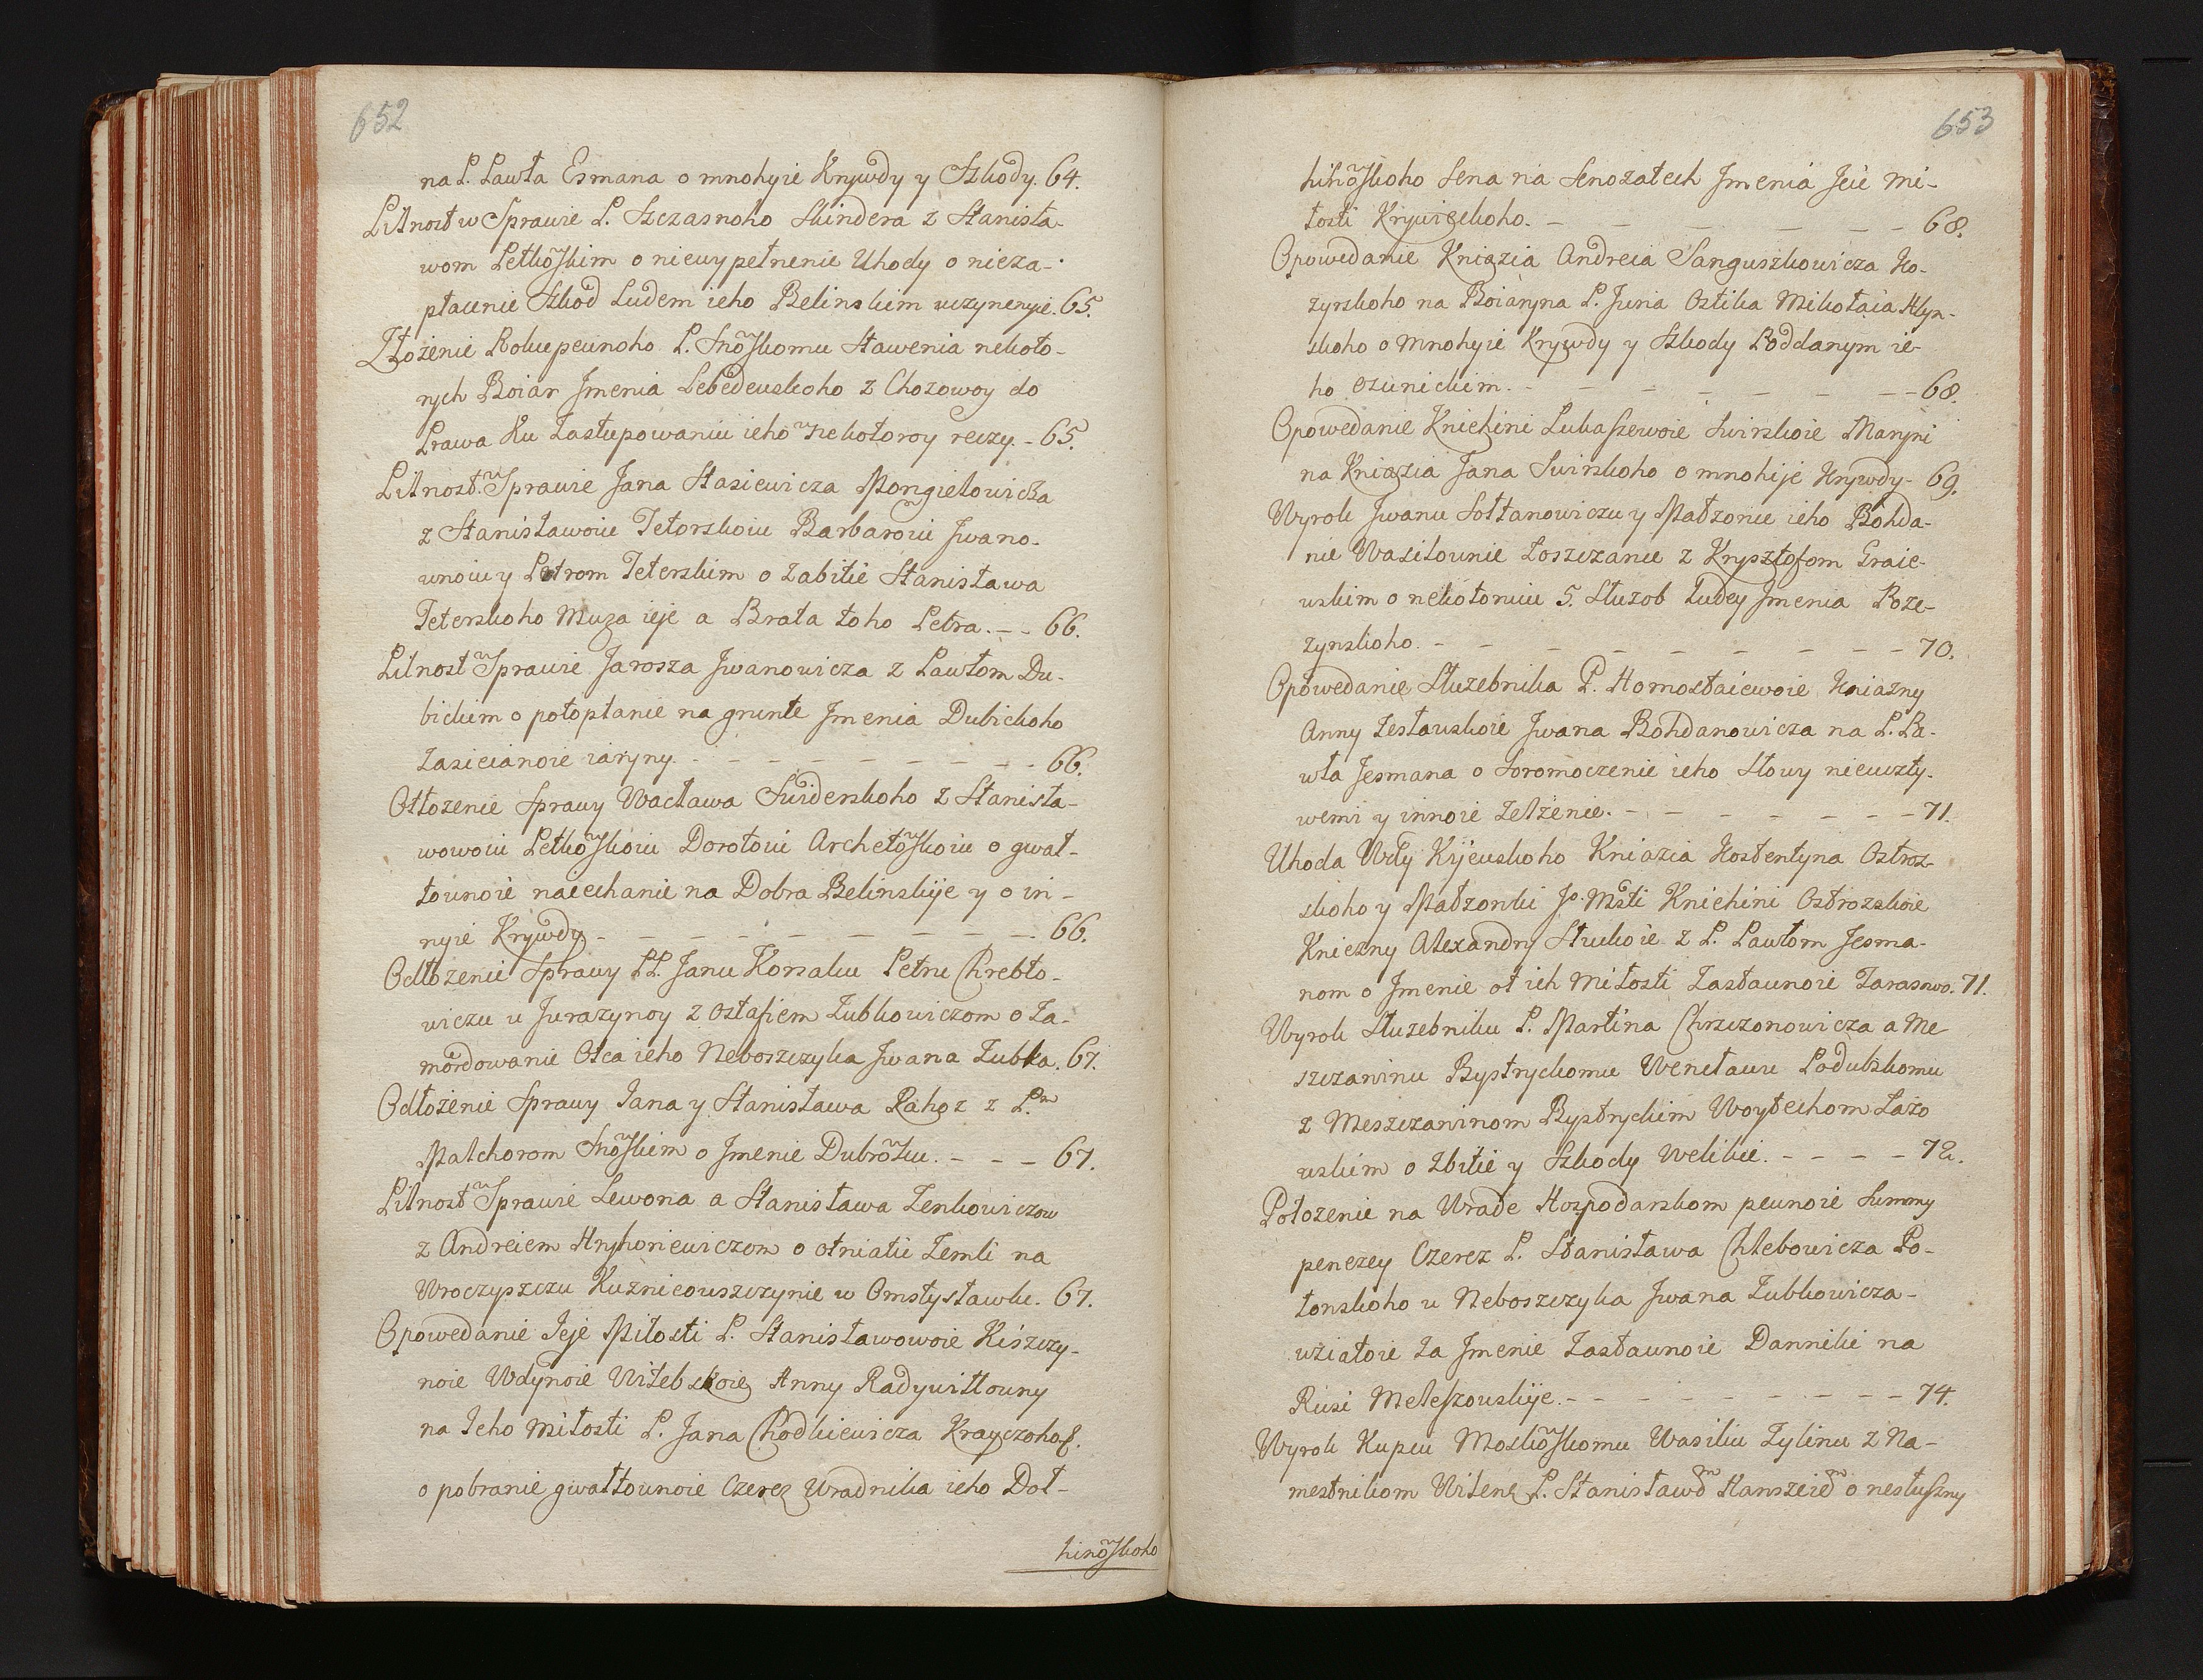 652
na P. Pawła Esmana o mnohyie Krywdy y Szkody. 64.
Pilnost w Sprawie P. Szczasnoho Skindera z Stanisła-
wom Petkowskim o niewypełnenie Uhody o nieza-
płacenie Szkod Ludem ieho Belinskim uczynenyie. 65.
Złożenie Roku pewnoho P. Snowskomu Stawenia nekoto-
rych Boiar Jmenia Lebedewskoho z Chozowoy do
Prawa Ku Zastupowaniu ieho w nekotoroy reczy. - 65.
Pilnost w Sprawie Jana Stasiewicza Mongielowicza
z Stanisławoiu Teterskoiu Barbaroiu Jwano-
wnoiu y Petrom Teterskim o Zabitie Stanisława
Teterskoho Muża ieje a Brata toho Petra. - - 66.
Pilnost w Sprawie Jarosza Jwanowicza z Pawłom Du-
bickim o potoptanie na grunte Jmenia Dubickoho
Zasieianoie iaryny. - - - - - - - - 66.
Otłożenie Sprawy Wacława Swiderskoho z Stanisła-
wowoiu Petkowskoiu Dorotoiu Orchetowskoiu o gwał-
townoie naiechanie na Dobra Belinskije y o in-
nyie Krywdy - - - - - - - - - 66.
Odłożenie Sprawy PP. Janu Korsaku Petru Chrebto-
wiczu u Jurazynoy z Ostafiem Zubkowiczom o Za-
mordowanie Otca ieho Neboszczyka Jwana Zubka. 67.
Odłożenie Sprawy Jana y Stanisława Rahoz z P.m
Malchorom Snowskim o Jmenie Dubrowku. - - - 67.
Pilnost w Sprawie Lewona a Stanisława Zenkowiczow
z Andreiem Hryhoriewiczom o otniatie Zemli na
Uroczyszczu Kuznicowszczynie w Omstysławlu. 67.
Opowedanie Jeje Miłosti P. Stanisławowoie Kiszczy-
noie Wdynoie Witebskoie Anny Radywiłłowny
na Jeho Miłosti P. Jana Chodkiewicza Krayczoho.
o pobranie gwałtownoie Czerez Uradnika ieho Doł-
hinowskoho
653
hinowskoho Sena na Senożatech Jmenia Jeie Mi-
łosti Krywickoho. - - - - - - - 68.
Opowedanie Kniazia Andreia Sanguszkowicza Ko-
zyrskoho na Boiaryna P. Juria Ostika Mikołaia Hlyn-
skoho o Mnohyie Krywdy y Szkody Poddanym ie-
ho Ozunickim. - - - - - - - - 68.
Opowedanie Kniehini Lukaszewoie Swirskoie Maryni
na Kniazia Jana Swirskoho o mnohije Krywdy - 69.
Wyrok Jwanu Sołtanowiczu y Małżonie ieho Bohda-
nie Wasilownie z Krysztofom Graie-
wskim o nekotoruiu 5. Służob Ludey Jmenia Roze-
zynskoho. - - - - - - - - - 70.
Opowedanie Służebnika P. Hornostaiewoie Kniażny
Anny Zesławskoie Jwana Bohdanowicza na P. Pa-
wła Jesmana o Soromoczenie ieho Słowy nieuczty-
wemi y innoie Zelżenie. - - - - - - - 71.
Uhoda Wdy Kijewskoho Kniazia Kostentyna Ostroz-
skoho y Małżonki Jo. Msti Kniehini Ostrozskoie
Knieżny Alexandry Słuckoie z P. Pawłom Jesma-
nom o Jmenie ot ich Miłosti Zastawnoie Tarasowo. 71.
Wyrok Służebniku P. Martina Chrszczonowicza a Me-
szczaninu Bystryckomu Wenctawu Podubskomu
z Meszczaninom Bystryckim Woytechom Łazo
wskim o Zbitie y Szkody Welikie. - - - - 72.
Położenie na Urade Hospodarskom pewnoie Summy
penezey Czerez P. Stanisława Chlebowicza Po-
łonskoho u Neboszczyka Jwana Zubkowicza-
wziatoie Za Jmenie Zastawnoie Dannikie na
Rusi Meleszowskije. - - - - - - - - 74.
Wyrok Kupcu Moskowskomu Wasiliu Zylinu z Na-
mestnikom Wilene. P. Stanisławom Hanszeiem o nesłuszny